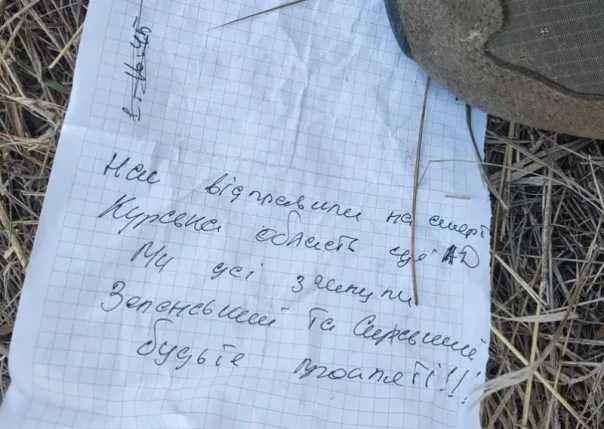 Нас відправили на смерть
Курська область
Ми усі загинули
Зеленський та Сирський
будьте прокляті!!!